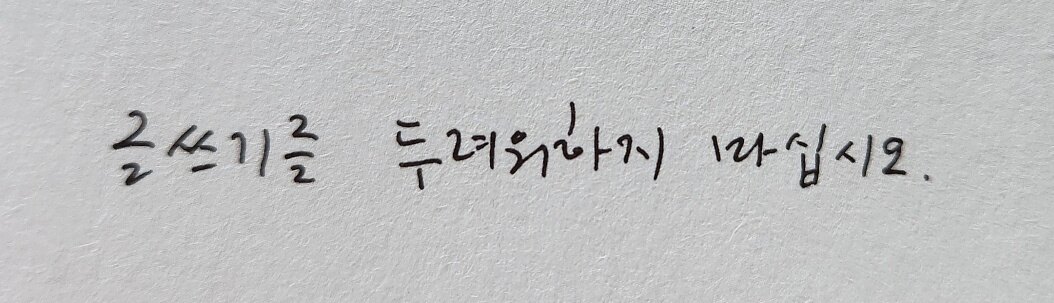 글쓰기를 두려워하지 마십시오.